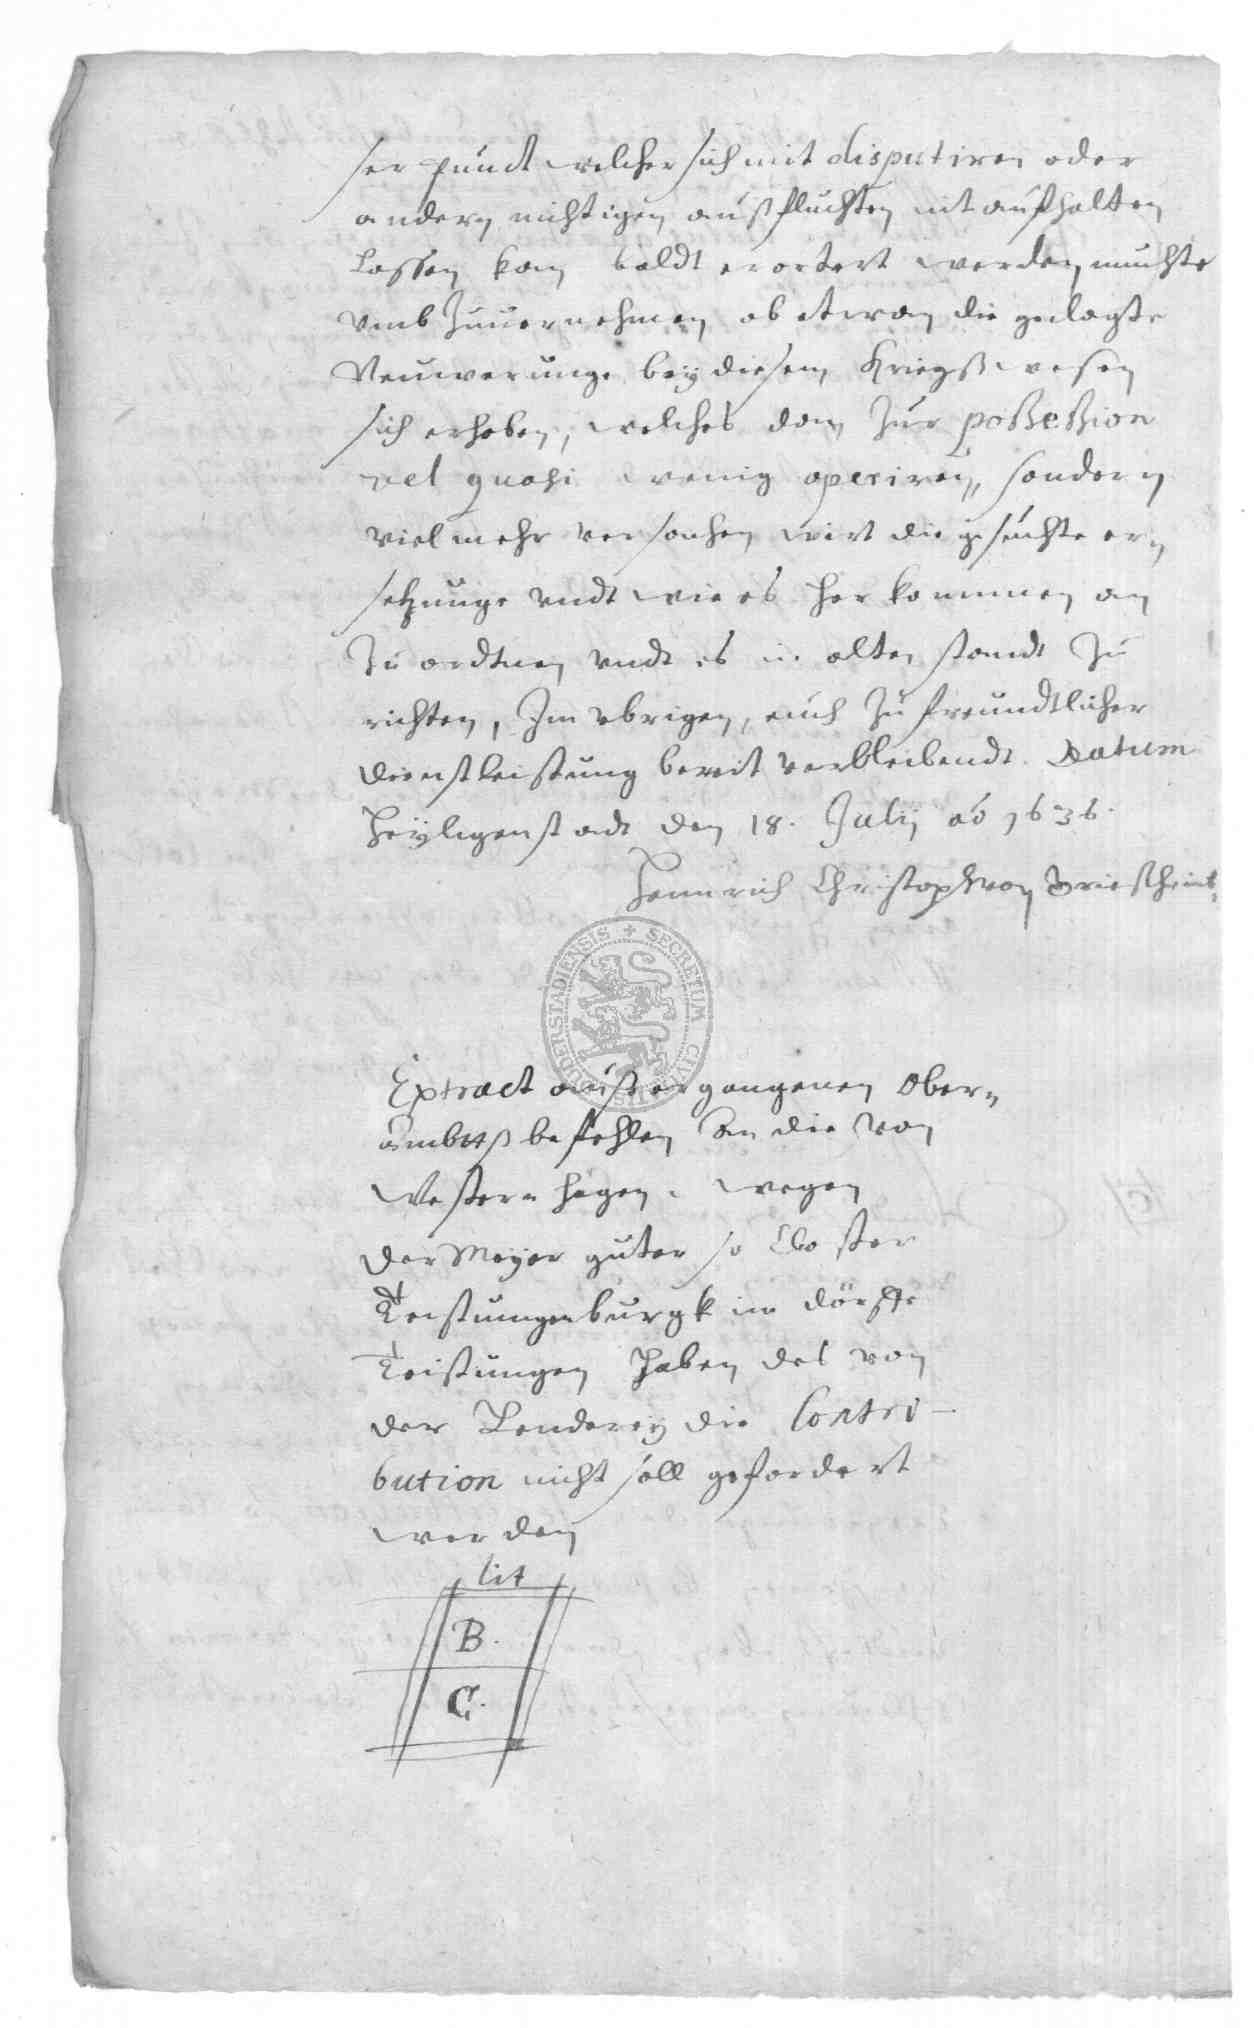 ser punct welcher sich mit disputiren oder
andern nichtigen außfluchten nit aufhalten
lassen kan baldt erortert werden muchte
umb zuuernehmen ob etwan die geclagte
Neuwerunge bey diesem Kriegßwesen
sich erhoben, welches dan zur possession
vel quasi wenig operiren, sondern
vielmehr verursachen wirt die gesuchte er-
setzunge undt wie es herkommen an
zu ordtnen undt es in alten standt zu
richten, Im ubrigen, euch zu freundtlicher
dienstleistung bereit verbleibendt. Datum
Heyligenstadt den 18. July ao 1636.
Hennrich Christoph von
SECRETUM CIVITATIS DUDERSTADIENSIS
Extract auß ergangenen Ober-
ambttß befehlen an die von
Westernhagen. wegen
der Meyer guter so Closter
Teistungenburgk im dorffe
Teistungen haben das von
der Lenderey die Contri-
bution nicht soll gefordert
werden
Lit
B.
C.